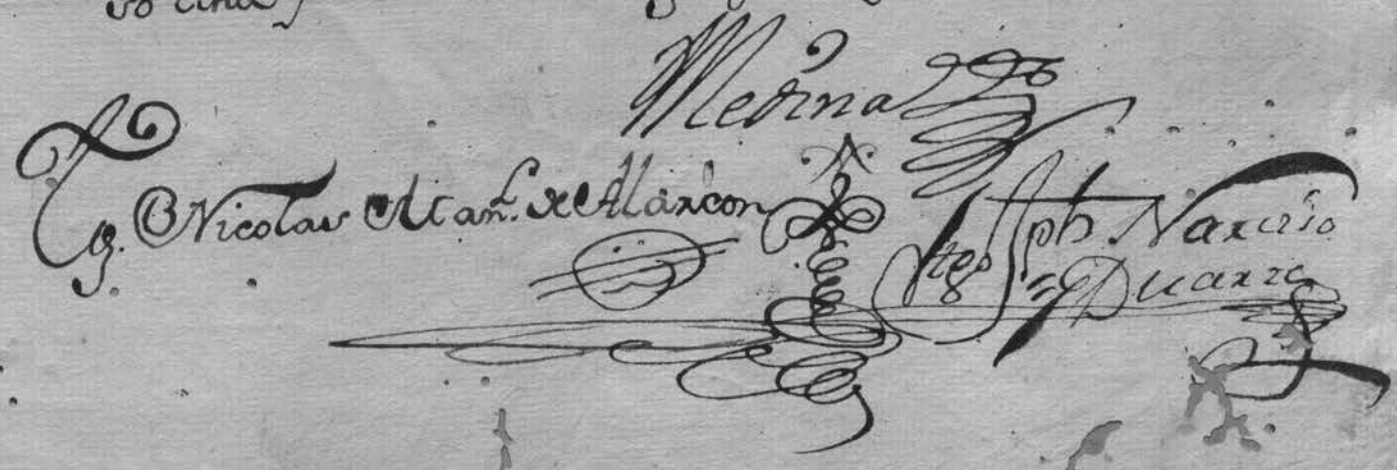 Medina
Tg.º Nicolas Man.l de Alarcon
tgo Jph Narciso
Duarte